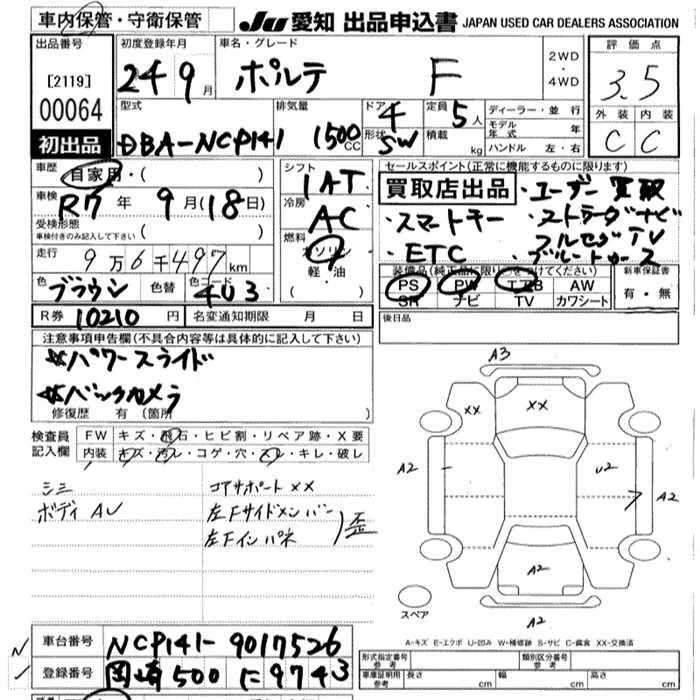 車内保管・守衛保管 JU 愛知 出品申込書 JAPAN USED CAR DEALERS ASSOCIATION
出品番号 初度登録年月 車名・グレード 2WD・4WD 評価点
[2119] 24 9月 ポルテ F 3.5
00064 型式 排気量 ドア 4 定員 5人 ディーラー・並行 外装 内装
DBA-NCP141 1500cc 形状 SW 積載 kg モデル年式 年 C C
初出品 ハンドル 左・右
車歴 自家用・( ) シフト 1AT セールスポイント(正常に機能するものに限ります)
車検 R7年 9月(18日) 冷房 AC 買取店出品 ・ユーザー買取
受検形態 ・スマートキー ・ストラーダナビ
車検付きのみ記入して下さい ( ) 燃料 ガソリン ・ETC ・フルセグTV
走行 9万6千497km 軽・油 ・ブルートゥース
色 ブラウン 色替 色コード 4U3 ( ) 装備品(純正品に限り○をつけてください) 新車保証書
PS PW エアB AW 有・無
SR ナビ TV カワシート
R券 10210円 名変通知期限 月 日 後日品
注意事項申告欄(不具合内容等は具体的に記入して下さい)
※パワースライド
※バックカメラ
修復歴 有(箇所 )
検査員記入欄 FW キズ・飛石・ヒビ割・リペア跡・X要
内装 キズ・汚レ・コゲ・穴・スレ・キレ・破レ
シミ コアサポートXX
ボディAU 左Fサイドメンバー
左Fインパネ )歪
A3
XX XX
A2 U2 A2
A2
A2
スペア
A-キズ E-エクボ U-凹み W-補修跡 S-サビ C-腐食 XX-交換済
車台番号 NCP141-9017526
登録番号 岡崎500に9743
形式指定番号 参考 類別区分番号 参考
車庫証明用 参考 長さ cm 幅 cm 高さ cm